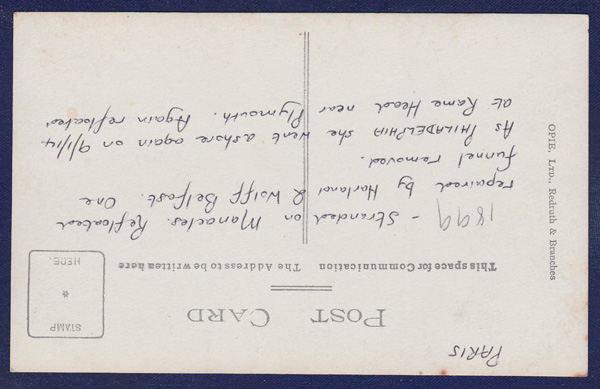 PARIS
POST CARD
STAMP
*
HERE.
This space for Communication The Address to be written here
1899 - Stranded on Manacles. Refloated
repaired by Harland & Wolff Belfast. One
funnel removed.
As PHILADELPHIA she went ashore again on 9/1/14
at Rame Head near Plymouth. Again refloated.
OPIE, LTD., Redruth & Branches